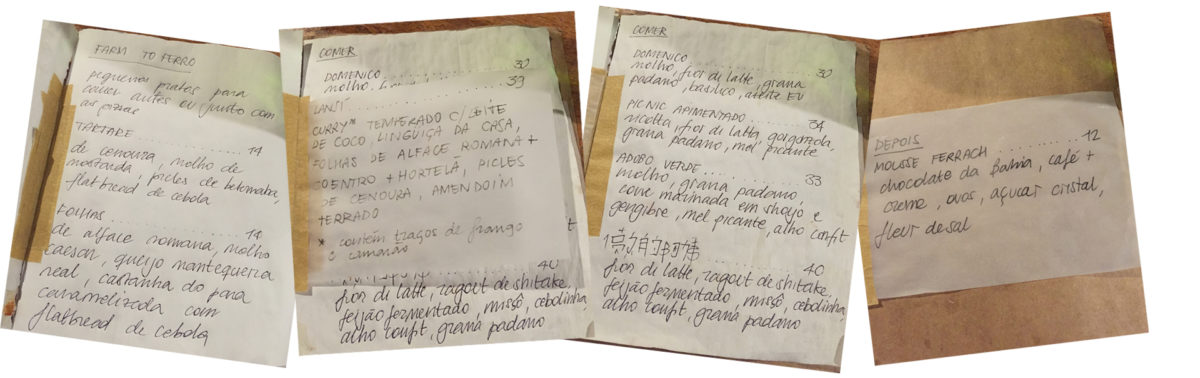 FARM TO FERRO
pequenos pratos para
comer antes ou junto com
as pizzas
TARTARE .............. 14
de cenoura, molho de
mostarda, picles de beterraba,
flatbread de cebola
FOLHAS .............. 14
de alface romana, molho
caesar, queijo manteigueira
real, castanha do pará
caramelizada com
flatbread de cebola
COMER
DOMENICO .............. 30
molho,
39
CURRY* TEMPERADO C/ LEITE
DE COCO, LINGUIÇA DA CASA,
FOLHAS DE ALFACE ROMANA +
COENTRO + HORTELÃ, PICLES
DE CENOURA, AMENDOIM
TERRADO
* contém traços de frango
e camarão
40
fior di latte, ragout de shitake,
feijão fermentado, missô, cebolinha,
alho confit, grana padano
COMER
DOMENICO .............. 30
molho, fior di latte, grana
padano, basilico, azeite EV
PICNIC APIMENTADO .............. 34
ricotta, fior di latte, gorgonzola,
grana padano, mel picante
ADOBO VERDE .............. 33
molho, grana padano,
couve marinada em shoyo e
gengibre, mel picante, alho confit
40
fior di latte, ragout de shitake,
feijão fermentado, missô, cebolinha,
alho confit, grana padano
DEPOIS
MOUSSE FERRACH .............. 12
chocolate da Bahia, café +
creme, ovos, açucar cristal,
fleur de sal